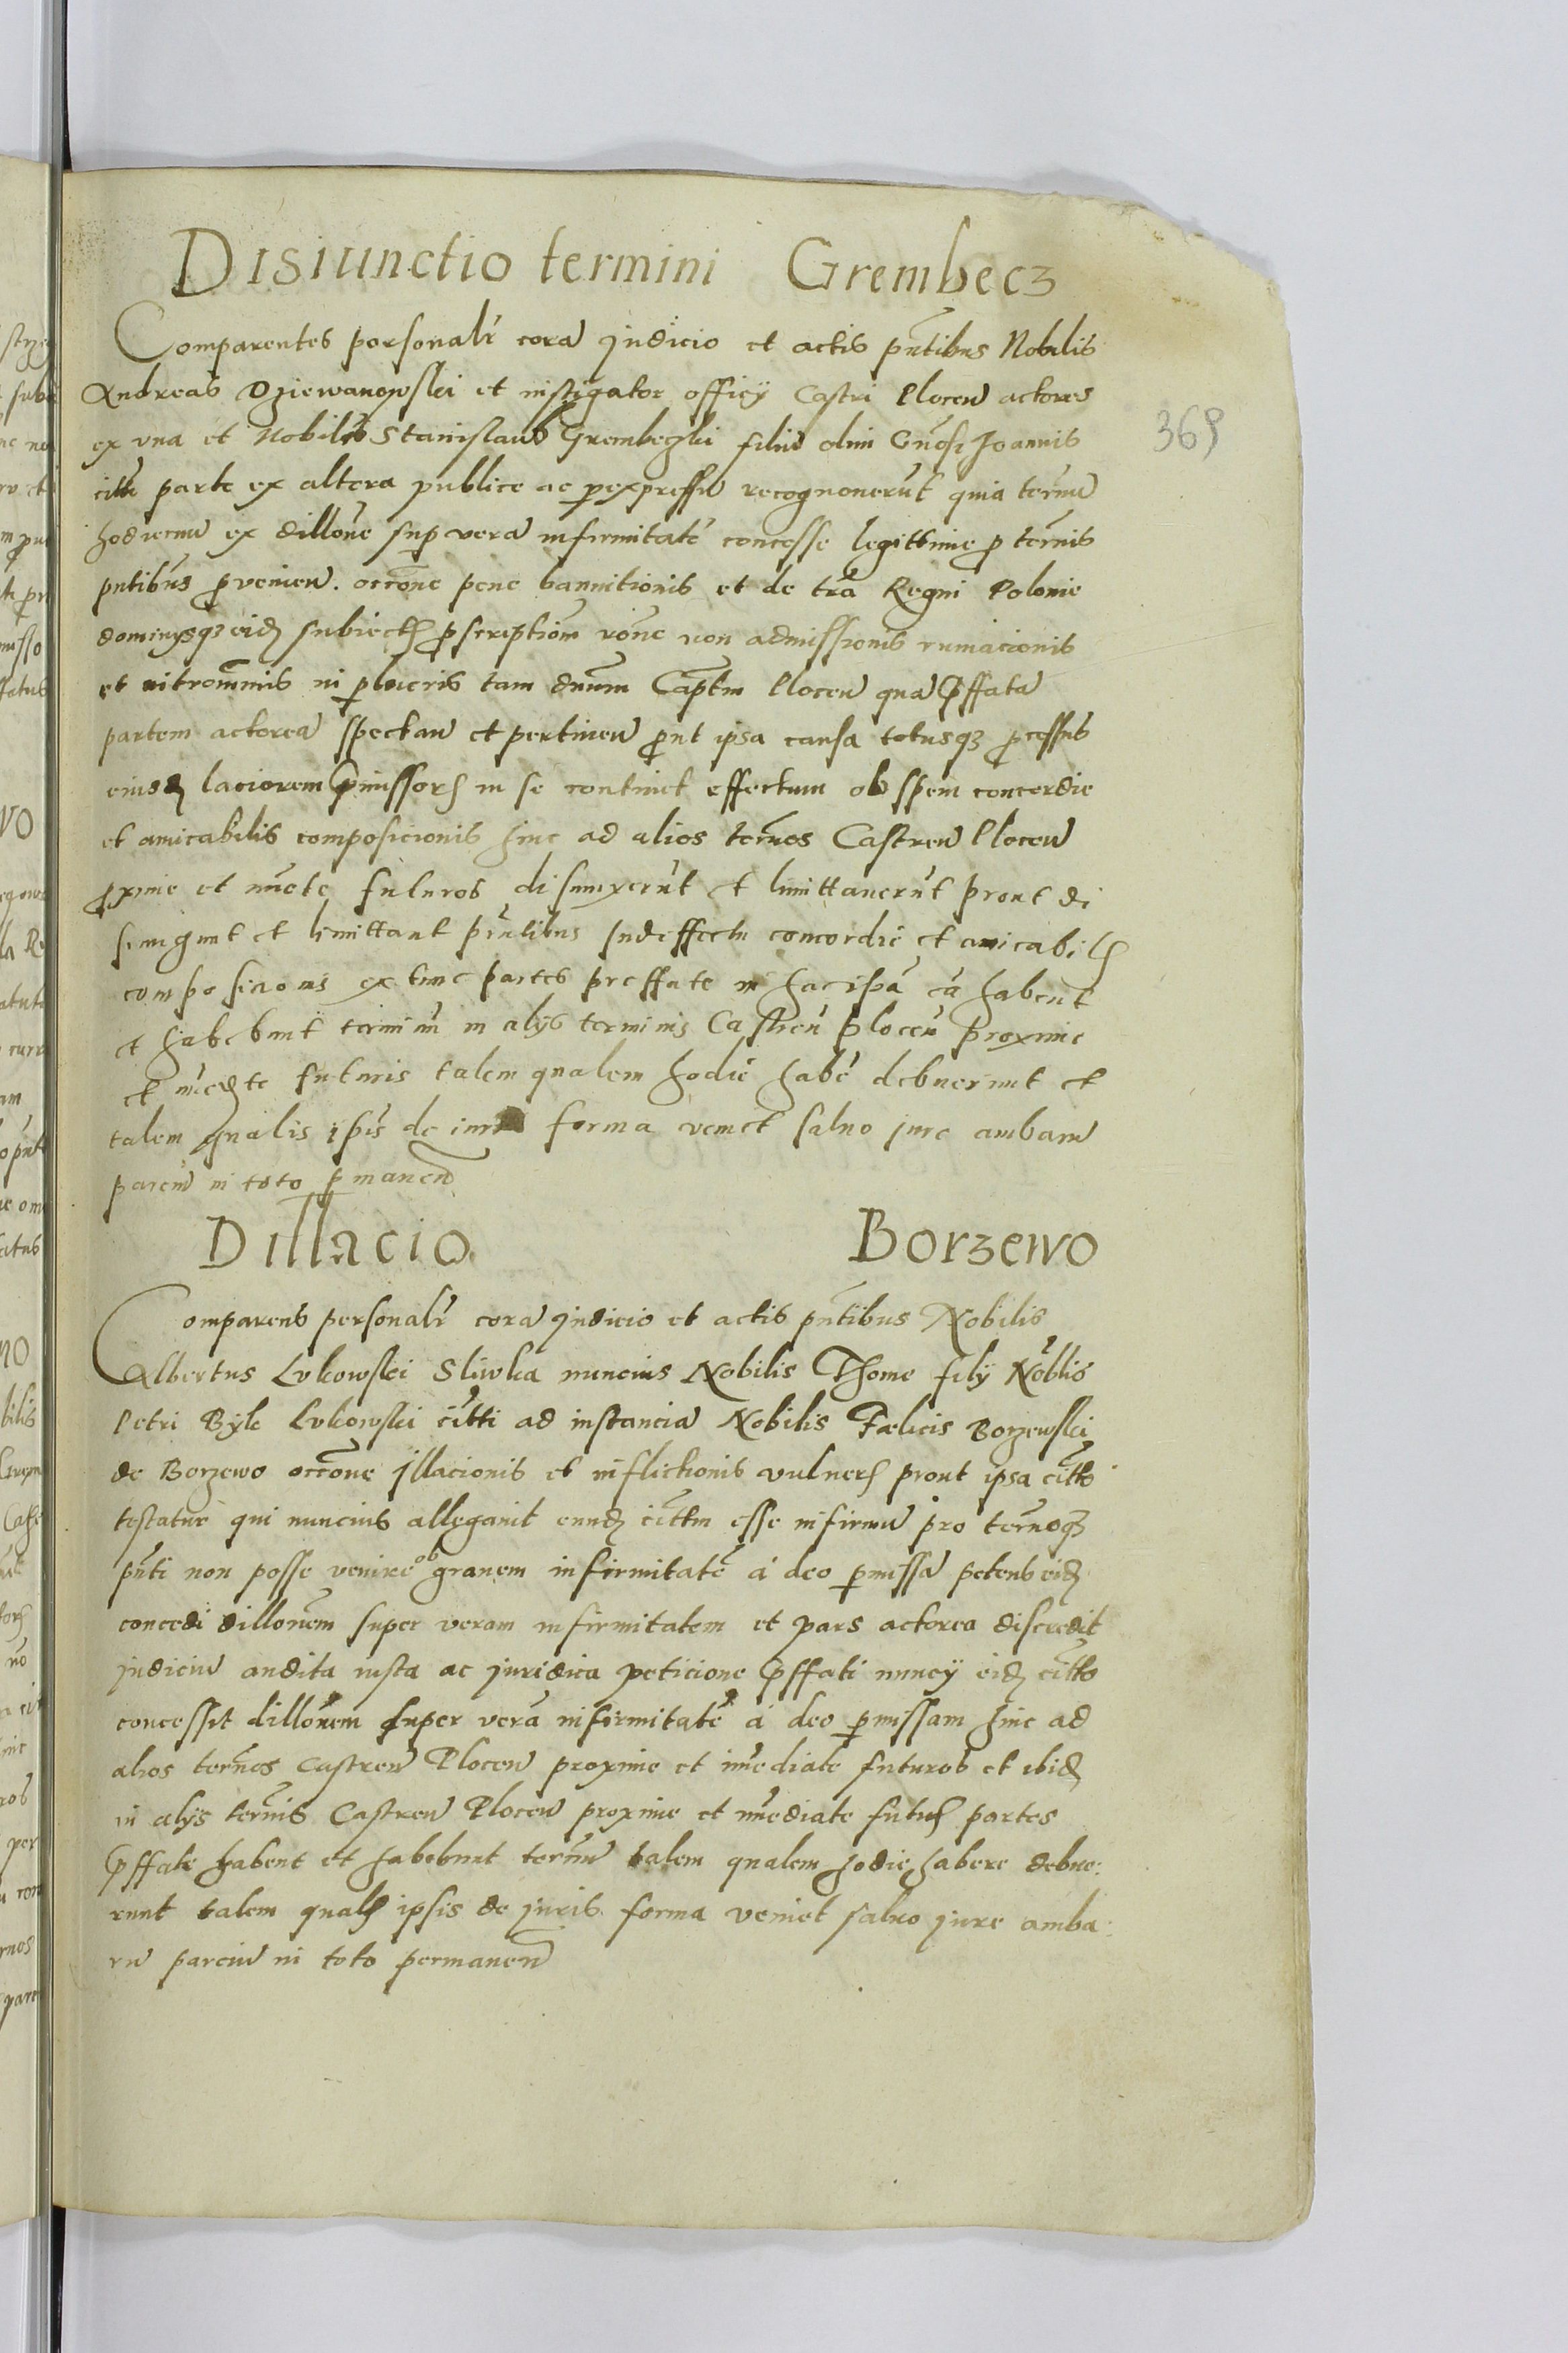 Disiunctio termini Grembecz
Comparentes personalr cora Judicio et actis pntibus Nobilis
Andreas Dziewanowski et instigator officij Castri Plocen actores
ex vna et Nobilis Stanislaus Grembeczki filius olim Gnosi Joannis
citti parte ex altera publice ac per expressu recognouerut quia termu
hodiernu ex dillone sup vera infirmitate concesse legittime p termis
pntibus prouenien. occone pene bannitionis et de tra Regni Polonie
dominysq3 eid subiectis proscriptiom rone non admissionis rumacionis
et intromnis in placris tam dnum Captm Plocen qua pffata
partem actorea spectan et pertinen prout ipsa causa totusq3 processus
eiusd laciorem pmissor in se continet effectum ob spem concordie
et amicabilis composicionis hinc ad alios termos Castren Plocen
proxime et imete futuros disiunxerut et limittauerut prout di
siungunt et limittant pntibus Indeffectu concordie et amicabilis
composicionis ex tunc partes preffate in hac ipa ca habent
et habebunt terminu in alijs terminis Castren plocen proxime
et imedte futuris talem qualem hodie habe debuerunt et
talem qualis ipis de iuris forma veniet saluo jure ambaru
parciu in toto pmanen
Dillacio Borzewo
Comparens personalr cora Judicio et actis pntibus Nobilis
Albertus Lukowski Sliwka nuncius Nobilis Thome filij Noblis
Petri Byle Lukowski citti ad instancia Nobilis Fœlicis Borzewski
de Borzewo occone Illacionis et inflictionis vulner prout ipsa citto
testatur qui nuncius allegauit eund cittm esse infirmu pro termoq3
pnti non posse venire ob grauem infirmitate a deo pmissa petens eid
concedi dillonem super veram infirmitatem et pars actorea discredit
judiciu audita iusta ac juridica peticione pffati nuncij eid citto
concessit dillonem super vera infirmitate a deo pmissam hinc ad
alios termos Castren Plocen proxime et imediate futuros et ibid
in alijs termis Castren Plocen proxime et imediate futur partes
pffate habent et habebunt termu talem qualem hodie habere debue:
runt talem qualis ipsis de juris forma veniet saluo jure amba:
ru parciu in toto permanen
369